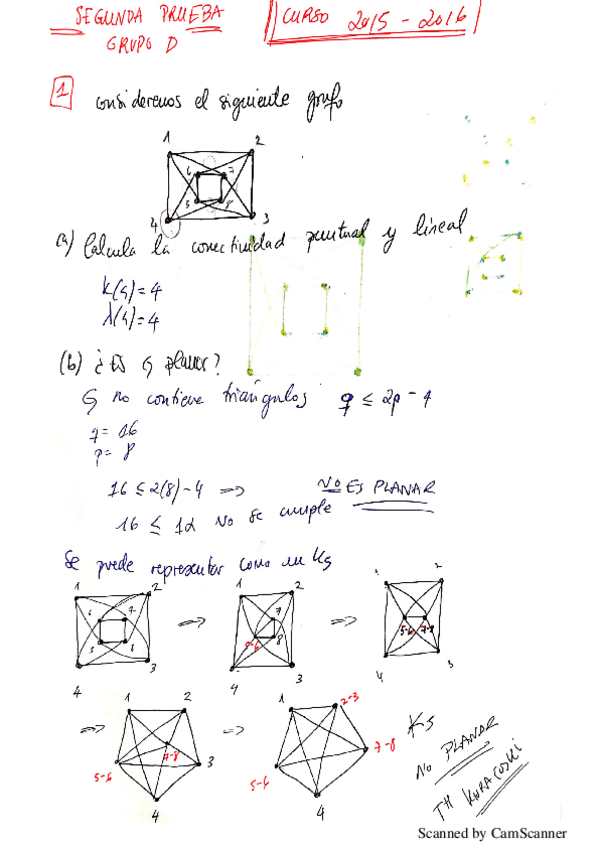 SEGUNDA PRUEBA
GRUPO D
CURSO 2015-2016
1 consideremos el siguiente grafo
1 2
6 7
5 8
4 3
(a) Calcula la conectividad puntual y lineal
K(G)=4
λ(G)=4
(b) ¿Es G planar?
G no contiene triángulos q ≤ 2p-4
q= 16
p= 8
16 ≤ 2(8)-4 =>
NO ES PLANAR
16 ≤ 12 No se cumple
Se puede representar como un K5
1 2
6 7
5 8
3
4
=>
1 2
7
5-6 8
4 3
=>
1 2
5-6 7-8
4 3
=>
1 2
7-8 3
5-6
4
=>
1 2-3
7-8
5-6
4
K5
NO PLANAR
TH KURATOSKI
Scanned by CamScanner